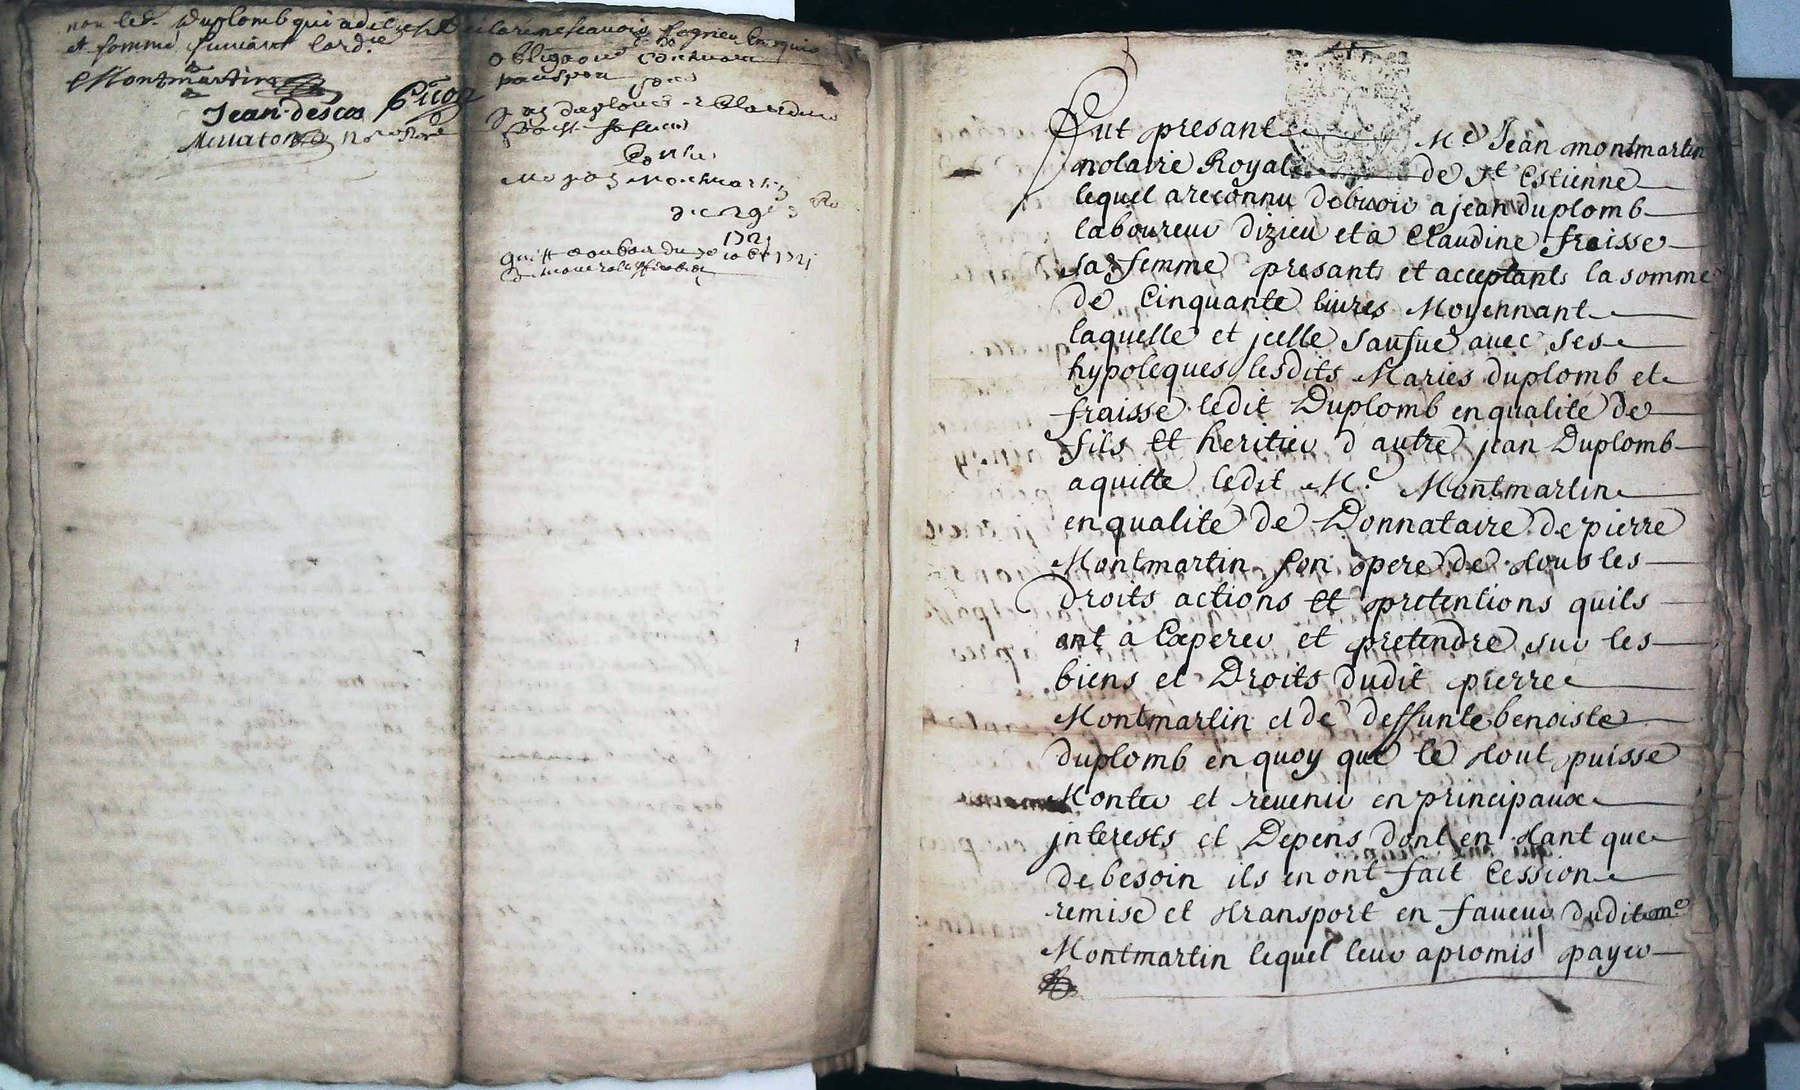 non led. Duplomb qui a dit
et sommé suivant lord.e
Montmartin
Jean descos Picon
Not. Roal
obligaon contenant
transport
Jean duplomb
Contre
Me Jean Montmartin
1721
quittance au bas du
fut presant Me Jean montmartin
notaire Royal de st Estienne
lequel a reconnu debvoir a jean duplomb
laboureur dizieu et a Claudine fraisse
sa femme presants et acceptants la somme
de Cinquante livres Moyennant
laquelle et jcelle sausue avec ses
hypoteques lesdits Maries duplomb et
fraisse ledit Duplomb en qualité de
fils et heritier d autre jean Duplomb
a quitte ledit Me. Montmartin
en qualité de Donnataire de pierre
Montmartin son pere de tous les
droits actions et pretentions quils
ont a Experer et pretendre sur les
biens et Droits dudit pierre
Montmartin et de deffunte benoiste
duplomb en quoy que le tout puisse
Monter et revenir en principaux
jnterests et Depens dont en tant que
de besoin ils en ont fait Cession
remise et transport en faveur dudit me
Montmartin lequel leur a promis payer